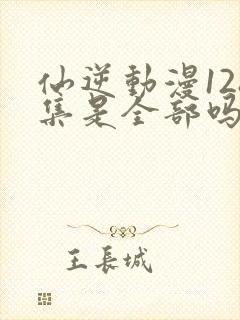 仙逆動漫12
集是全部吗
王長城